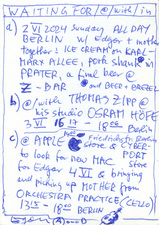 WAITING FOR/@/with/in
a) 2 VI 2024 Sunday ALL DAY
BERLIN w/ Edgar + mother
together: ICE CREAM on KARL
MARX ALLEE, pork shank in
PRATER, a final beer @
Z-BAR and BEER+BREZEL
b) @/with THOMAS ZIPP @
his studio OSRAM HÖFE
3 VI 16 17 - 18 00 Berlin
c) @ APPLE Friedrichstr. Berlin
Store & CYBER-
PORT
to look for new MAC Store
for Edgar 4 VI & bringing
and picking up MOTHER from
ORCHESTRA PRACTICE (CELLO)
13 15 - 18 40 BERLIN